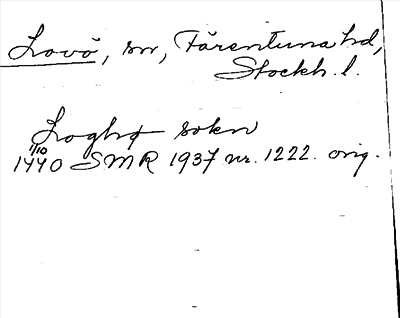 Lovö, sn, Färentuna hd,
Stockh. l.
Loghø sokn
1/10
1440 SMR 1937 nr. 1222. orig.